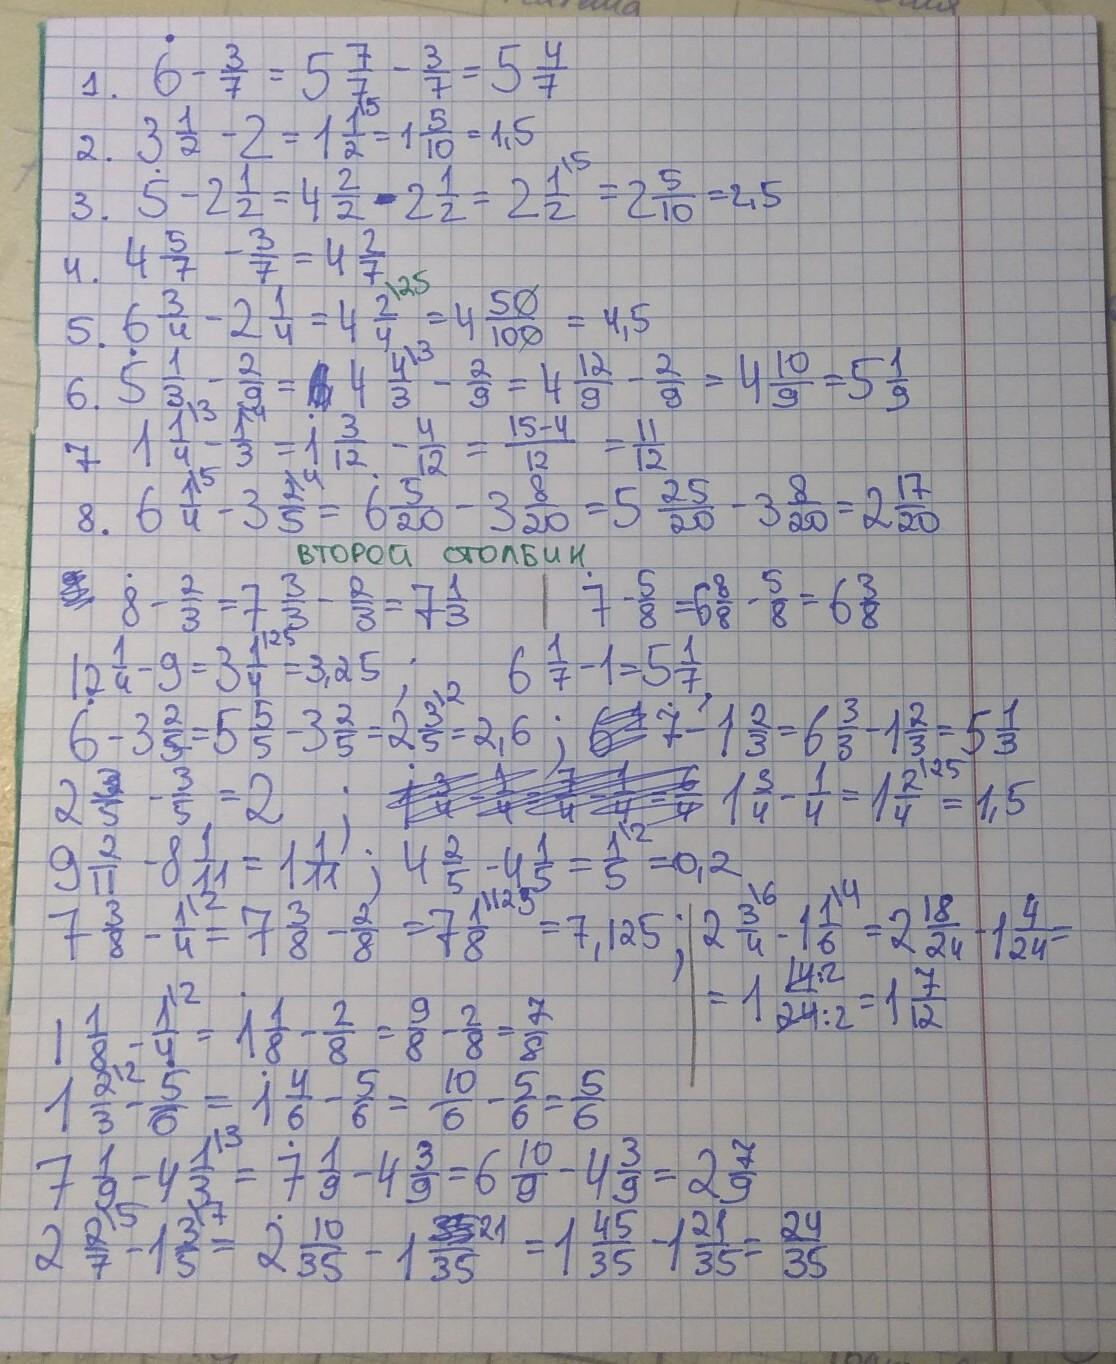 1. 6 - 3/7 = 5 7/7 - 3/7 = 5 4/7
2. 3 1/2 - 2 = 1 1\5/2 = 1 5/10 = 1,5
3. 5 - 2 1/2 = 4 2/2 - 2 1/2 = 2 1\5/2 = 2 5/10 = 2,5
4. 4 5/7 - 3/7 = 4 2/7
5. 6 3/4 - 2 1/4 = 4 2\25/4 = 4 50/100 = 4,5
6. 5 1/3 - 2/9 = 4 4\3/3 - 2/9 = 4 12/9 - 2/9 = 4 10/9 = 5 1/9
7 1 1\3/4 - 1\4/3 = 1 3/12 - 4/12 = 15-4/12 = 11/12
8. 6 1\5/4 - 3 2\4/5 = 6 5/20 - 3 8/20 = 5 25/20 - 3 8/20 = 2 17/20
ВТОРОЙ СТОЛБИК
8 - 2/3 = 7 3/3 - 2/3 = 7 1/3 | 7 - 5/8 = 6 8/8 - 5/8 = 6 3/8
12 1/4 - 9 = 3 1\25/4 = 3,25 ; 6 1/7 - 1 = 5 1/7
6 - 3 2/5 = 5 5/5 - 3 2/5 = 2 3\2/5 = 2,6 ; 7 - 1 2/3 = 6 3/3 - 1 2/3 = 5 1/3
2 3/5 - 3/5 = 2 ; 1 3/4 - 1/4 = 1 2\25/4 = 1,5
9 2/11 - 8 1/11 = 1 1/11 ; 4 2/5 - 4 1/5 = 1\2/5 = 0,2
7 3/8 - 1\2/4 = 7 3/8 - 2/8 = 7 1\125/8 = 7,125 ; 2 3\6/4 - 1 1\4/6 = 2 18/24 - 1 4/24 =
= 1 14:2/24:2 = 1 7/12
1 1/8 - 1\2/4 = 1 1/8 - 2/8 = 9/8 - 2/8 = 7/8
1 2\2/3 - 5/6 = 1 4/6 - 5/6 = 10/6 - 5/6 = 5/6
7 1/9 - 4 1\3/3 = 7 1/9 - 4 3/9 = 6 10/9 - 4 3/9 = 2 7/9
2 2\5/7 - 1 3\7/5 = 2 10/35 - 1 21/35 = 1 45/35 - 1 21/35 = 24/35